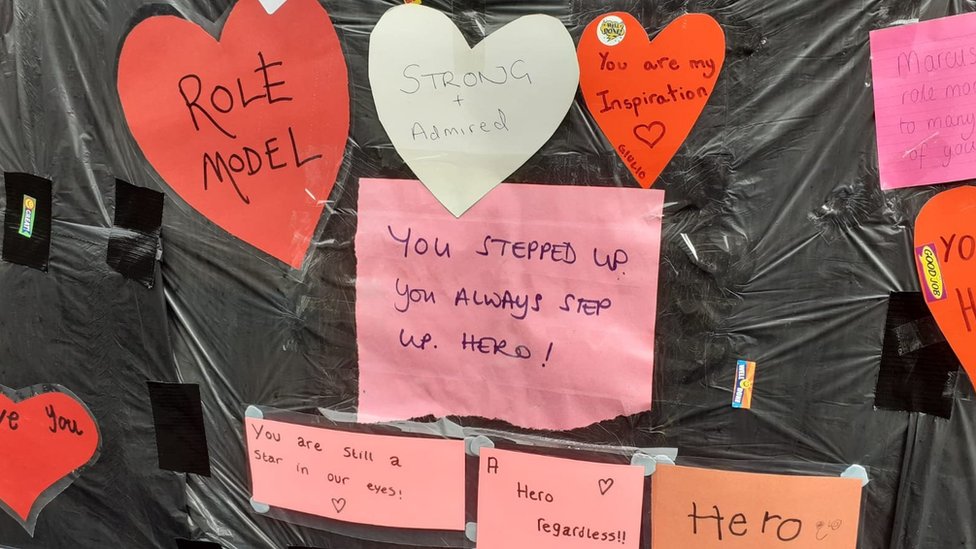 ROLE
MODEL
STRONG
+
Admired
WELL
DONE!
You are my
Inspiration
GIULIO
Marcus
role mo
to many
of you
YOU STEPPED UP.
YOU ALWAYS STEP
UP. HERO!
GREAT
GOOD JOB
YO
H
ve you
WELL
DONE
You are still a
star in our eyes!
A
Hero
regardless!!
Hero